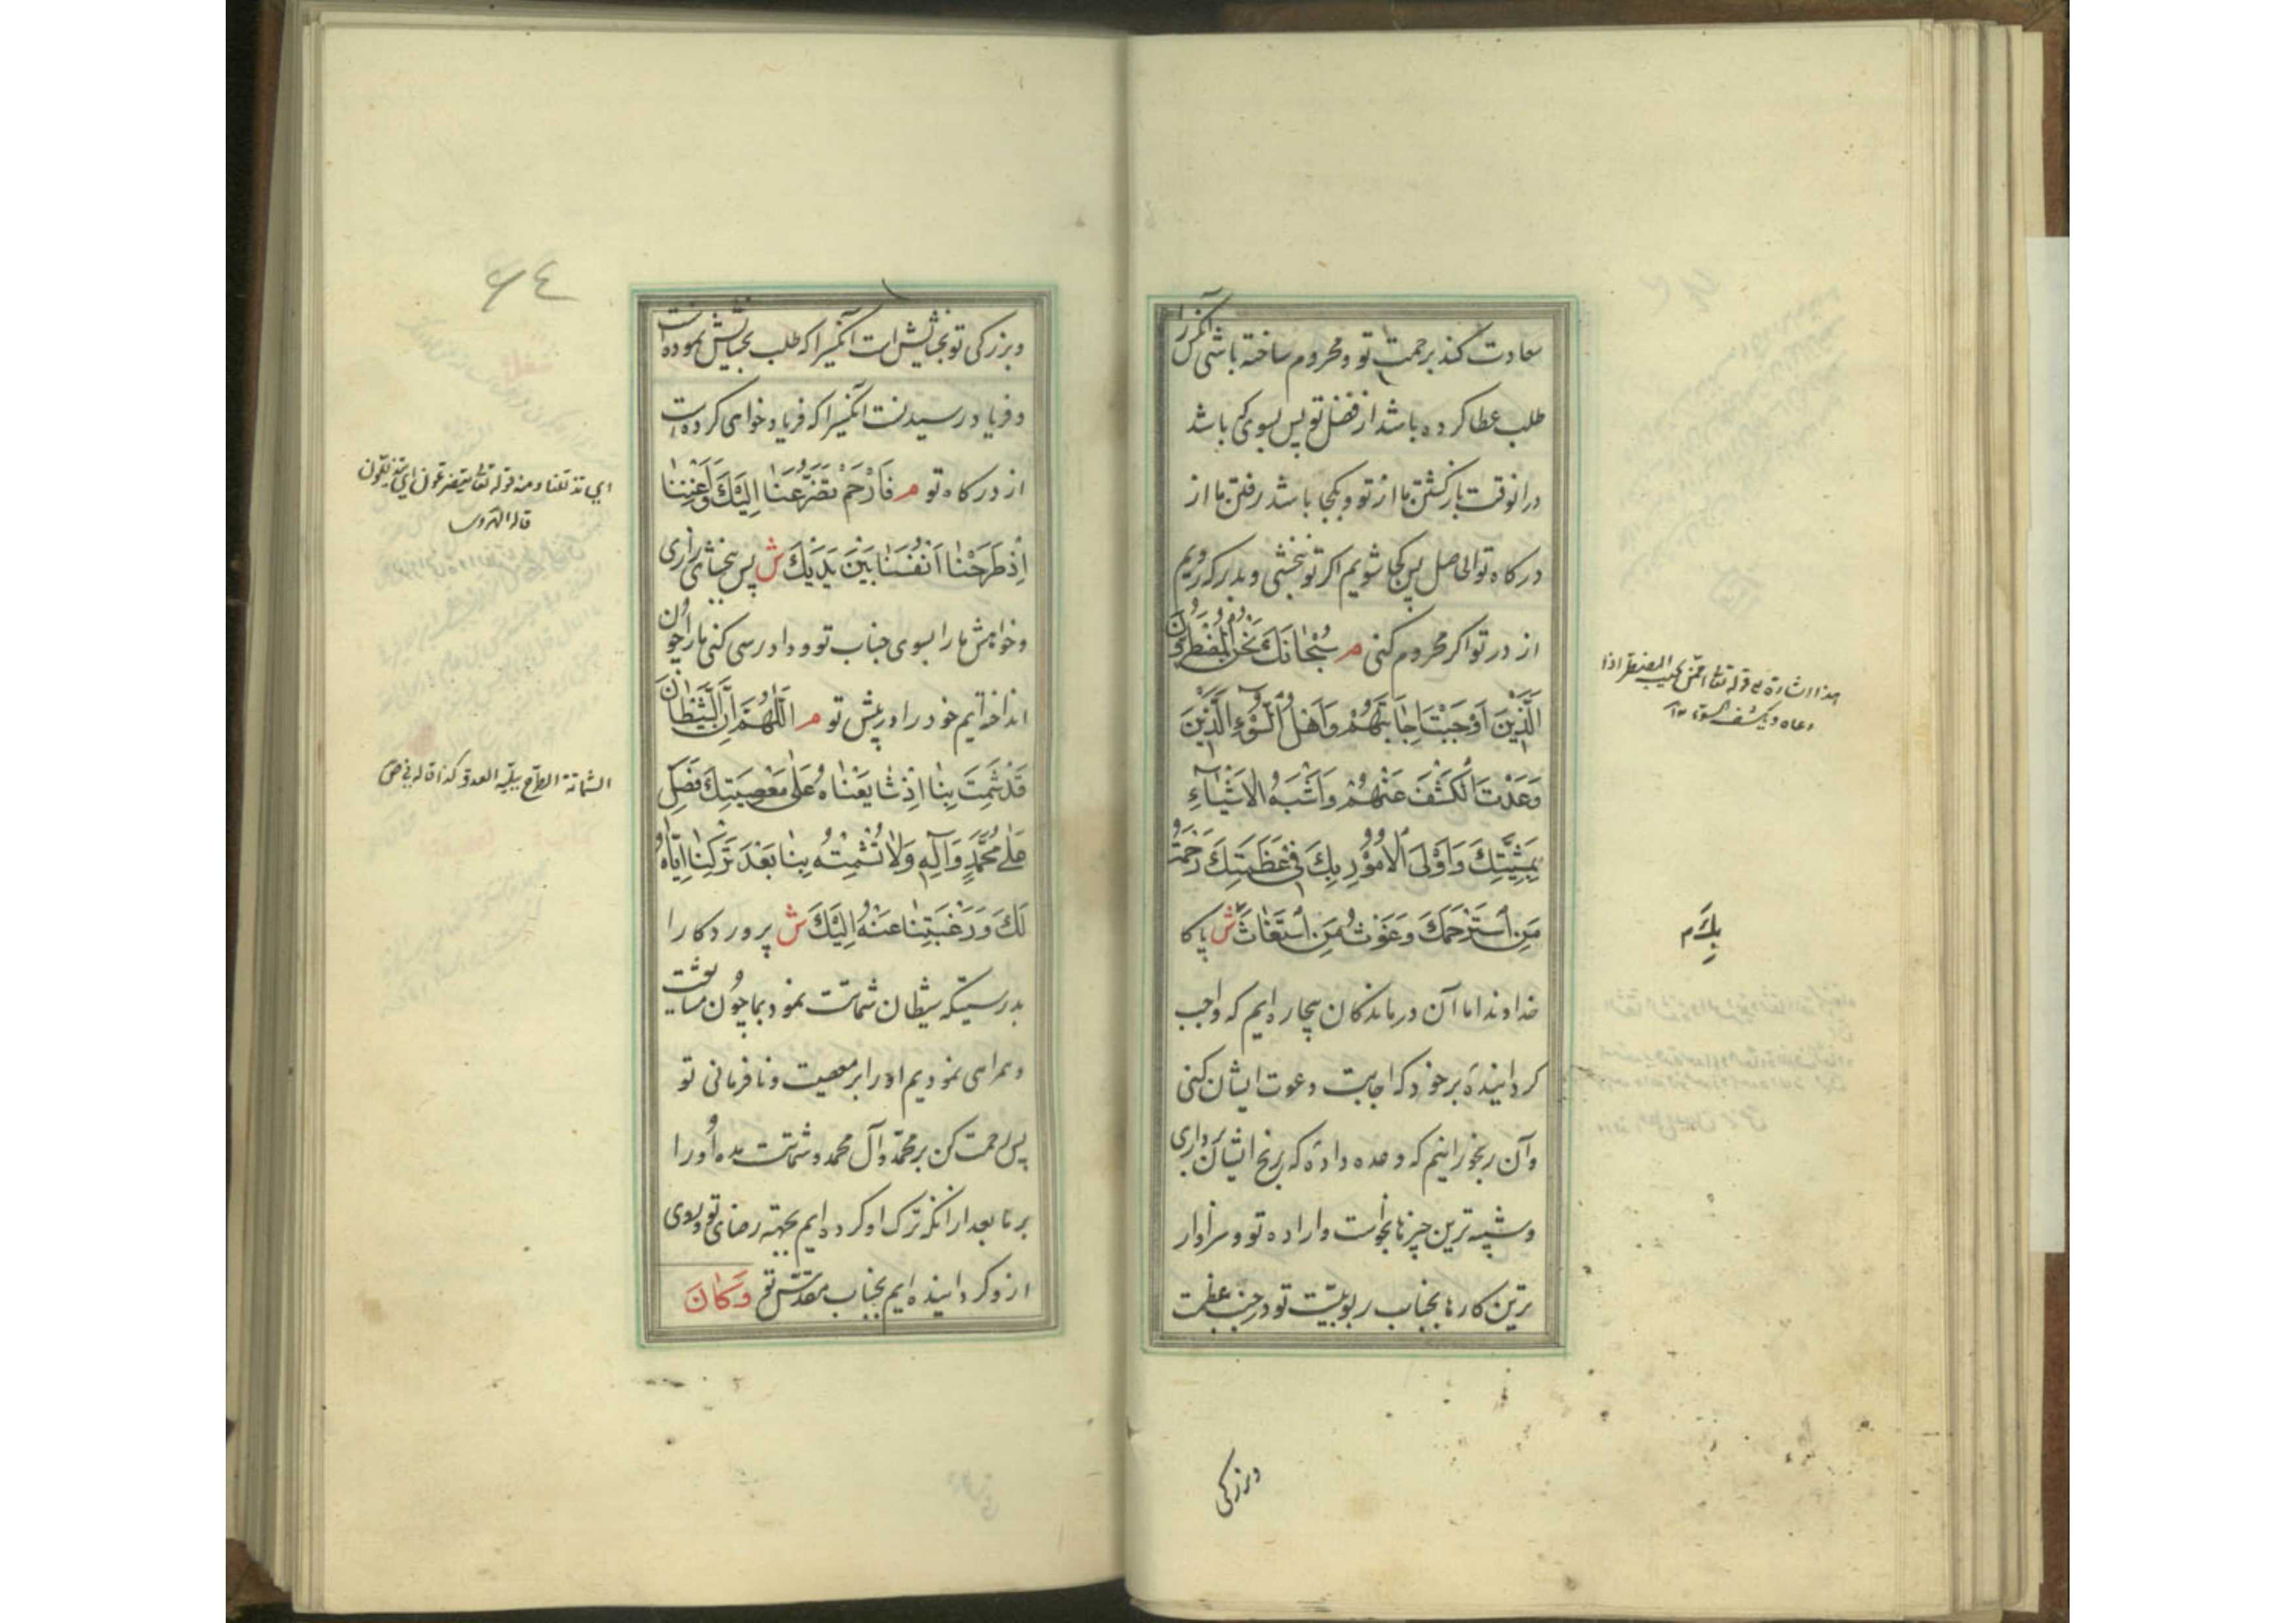 سعادت کند برحمت تو و محروم ساخته باشی آنکس را کز
طلب عطا کرده باشد از فضل تو پس بسوی که باشد
درانوقت بازکشتن ما از تو و بکجا باشد رفتن ما از
درکاه تو الحاصل پس کجا شویم اکر تو نبخشی و بدر که رویم
از در تو اکر محروم کنی م سُبْحَانَكَ نَحْنُ الْمُضْطَرُّونَ
الَّذِينَ اَوْجَبْتَ اِجَابَتَهُمْ وَاَهْلُ السُّوءِ الَّذِينَ
وَعَدْتَ الْكَشْفَ عَنْهُمْ وَاَشْبَهُ الْاَشْيَاءِ
بِمَشِيَّتِكَ وَاَوْلَى الْاُمُورِ بِكَ فِي عَظَمَتِكَ رَحْمَةُ
مَنِ اسْتَرْحَمَكَ وَغَوْثُ مَنِ اسْتَغَاثَ ش پاکا
خداوندا ما آن درماندکان بیچاره ایم که واجب
کردانیدهٔ بر خود که اجابت دعوت ایشان کنی
وآن رنجورانیم که وعده دادهٔ که رنج ایشان برداری
و شبیه ترین چیزها بخواست و اراده تو و سزاوار
ترین کارها بجناب ربوبیت تو در جنب عظمت
هذا اشارة الی قوله تعالی امّن یجیب المضطر اذا
دعاه و یکشف السوء ١٢
بِكَ م
وبزرکی
٦٤
وبزرکی تو بخشایش است آنکسیرا که طلب بخشایش نموده است
و فریاد رسیدنست آنکسیرا که فریاد خواهی کرده است
از درکاه تو م فَارْحَمْ تَضَرُّعَنَا اِلَيْكَ وَاَغْنِنَا
اِذْ طَرَحْنَا اَنْفُسَنَا بَيْنَ يَدَيْكَ ش پس ببخشای زاری
و خواهش ما را بسوی جناب تو و دادرسی کنی ما را چون
انداخته ایم خود را در پیش تو م اَللّٰهُمَّ اِنَّ الشَّيْطَانَ
قَدْ شَمِتَ بِنَا اِذْ شَايَعْنَاهُ عَلٰى مَعْصِيَتِكَ فَصَلِّ
عَلٰى مُحَمَّدٍ وَآلِهِ وَلَا تُشْمِتْهُ بِنَا بَعْدَ تَرْكِنَا اِيَّاهُ
لَكَ وَرَغْبَتِنَا عَنْهُ اِلَيْكَ ش پروردکارا
بدرستیکه شیطان شماتت نمود بما چون متابعت
و همراهی نمودیم او را بر معصیت و نافرمانی تو
پس رحمت کن بر محمد و آل محمد و شماتت مده او را
بر ما بعد ازانکه ترک او کرده ایم بجهته رضای تو و روی
ازو کردانیده ایم بجناب مقدس تو وَكَانَ
ای تذللنا ومنه قوله تعالی یتضرعون ای یتذللون
الشماتة الفرح ببلیة العدو کذا قاله فی ص